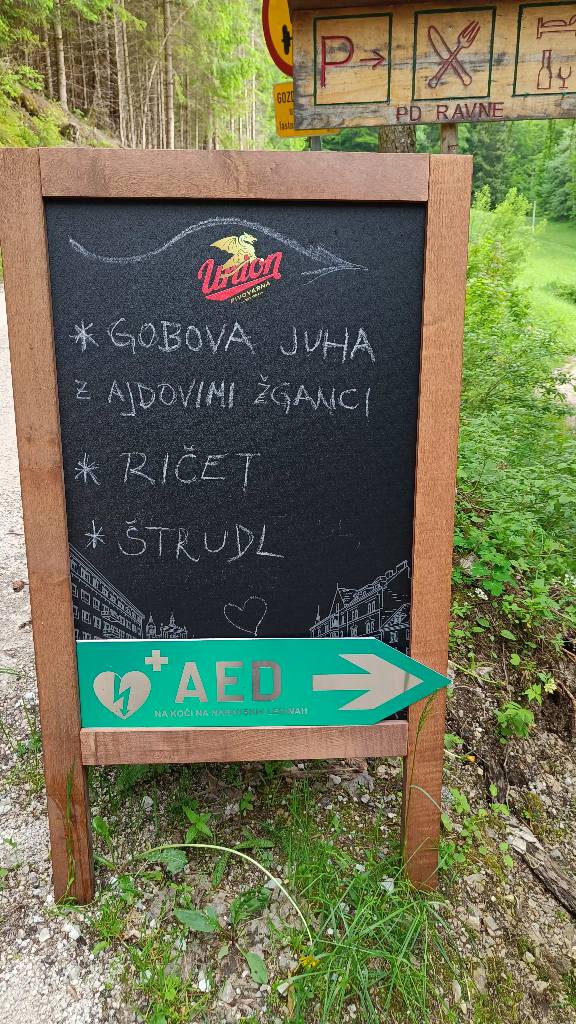 P
PD RAVNE
GOZD
Union
PIVOVARNA
* GOBOVA JUHA
Z AJDOVIMI ŽGANCI
* RIČET
* ŠTRUDL
AED
NA KOČI NA